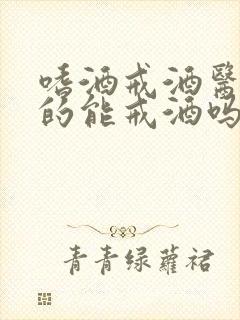 嗜酒戒酒醫
的能戒酒吗
青青绿蘿裙